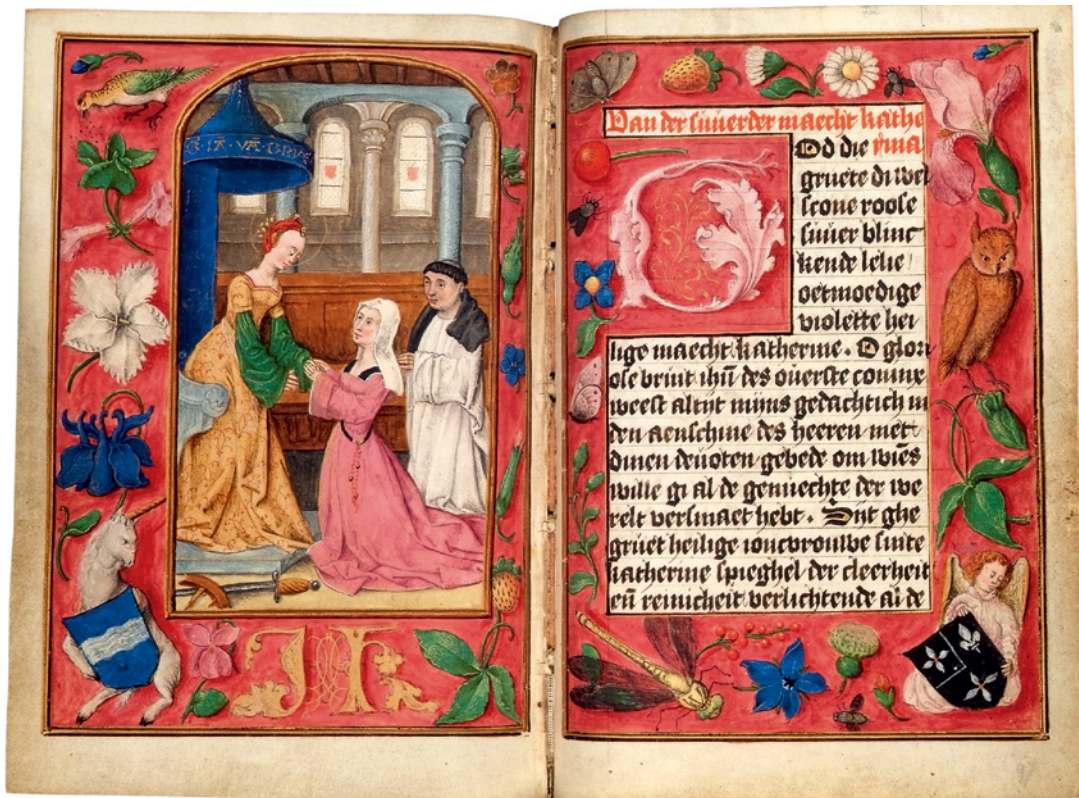 IA · VĀ · BRVE
J K
Van der suuerder maecht kathe
rina
God die
gruete di wel
scone roose
suuer blinc
kende lelie
oetmoedige
violette hei
lige maecht katherine. O glori
ose bruut ihū des ouerste coninx
weest altyt myns gedachtich in
den aenschine des heeren met
dinen deuoten gebede om wiēs
wille gi al de genuechte der we
relt versmaet hebt. Syt ghe
gruet heilige ioncvrouwe sinte
katherine spieghel der cleerheit
eñ reinicheit verlichtende al de